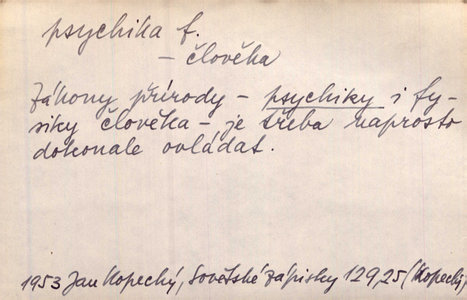 psychika f.
– člověka
Zákony přírody – psychiky i fy-
siky člověka – je třeba naprosto
dokonale ovládat.
1953 Jan Kopecký, Sovětské zápisky 129,25 (Kopecký)